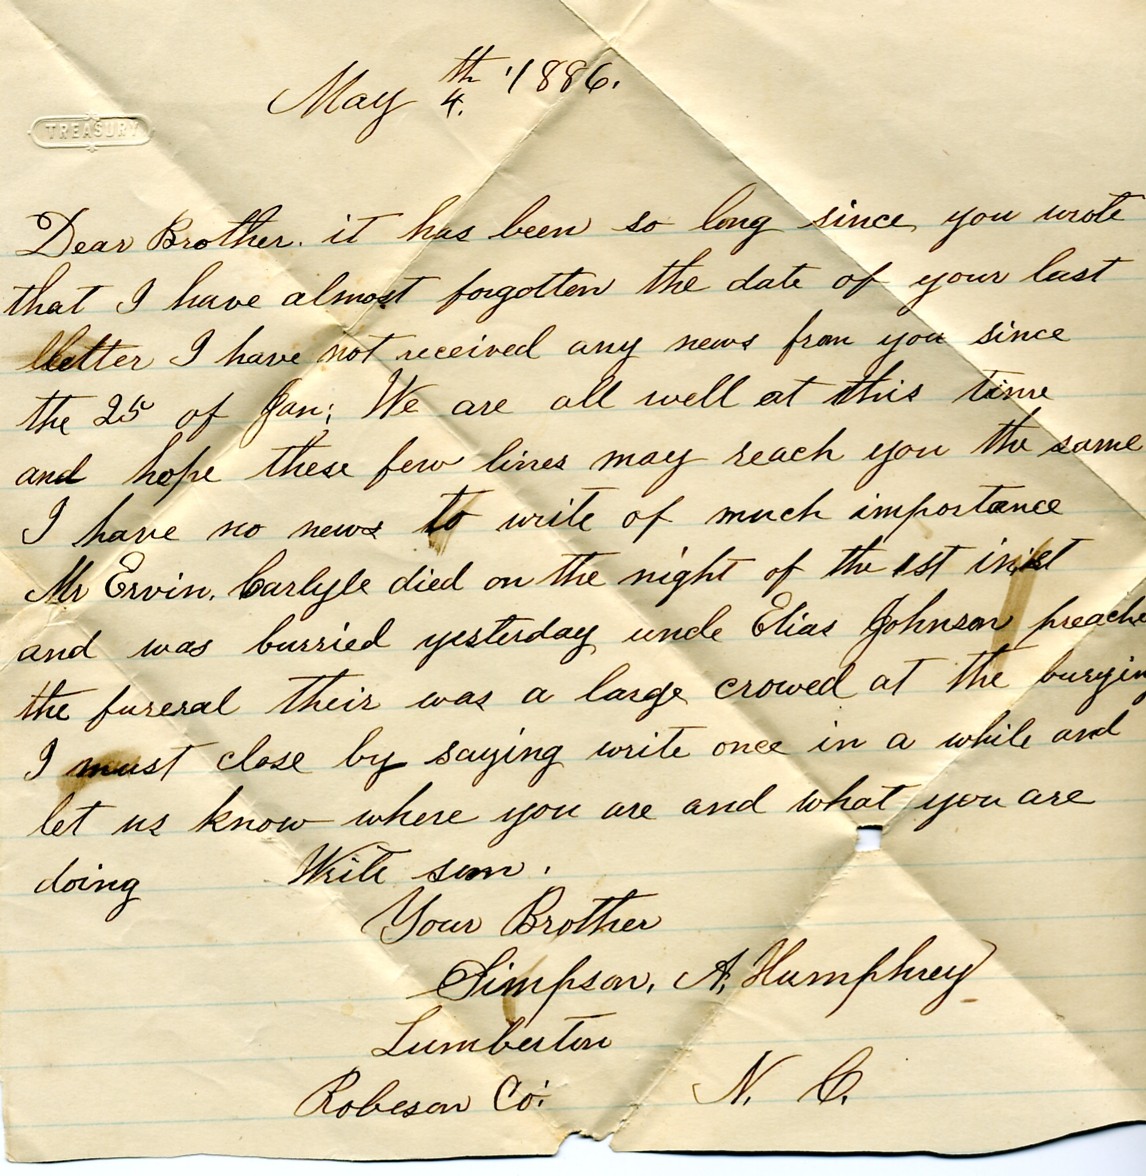 May 4.th 1886.
TREASURY
Dear Brother. it has been so long since you wrote
that I have almost forgotten the date of your last
letter I have not received any news from you since
the 25 of Jan; We are all well at this time
and hope these few lines may reach you the same
I have no news to write of much importance
Mr Ervin. Carlyle died on the night of the 1st inst
and was burried yesterday uncle Elias Johnson preache
the funeral their was a large crowed at the buryin
I must close by saying write once in a while and
let us know where you are and what you are
doing Write soon.
Your Brother
Simpson. A. Humphrey
Lumberton
Robeson Co: N. C.